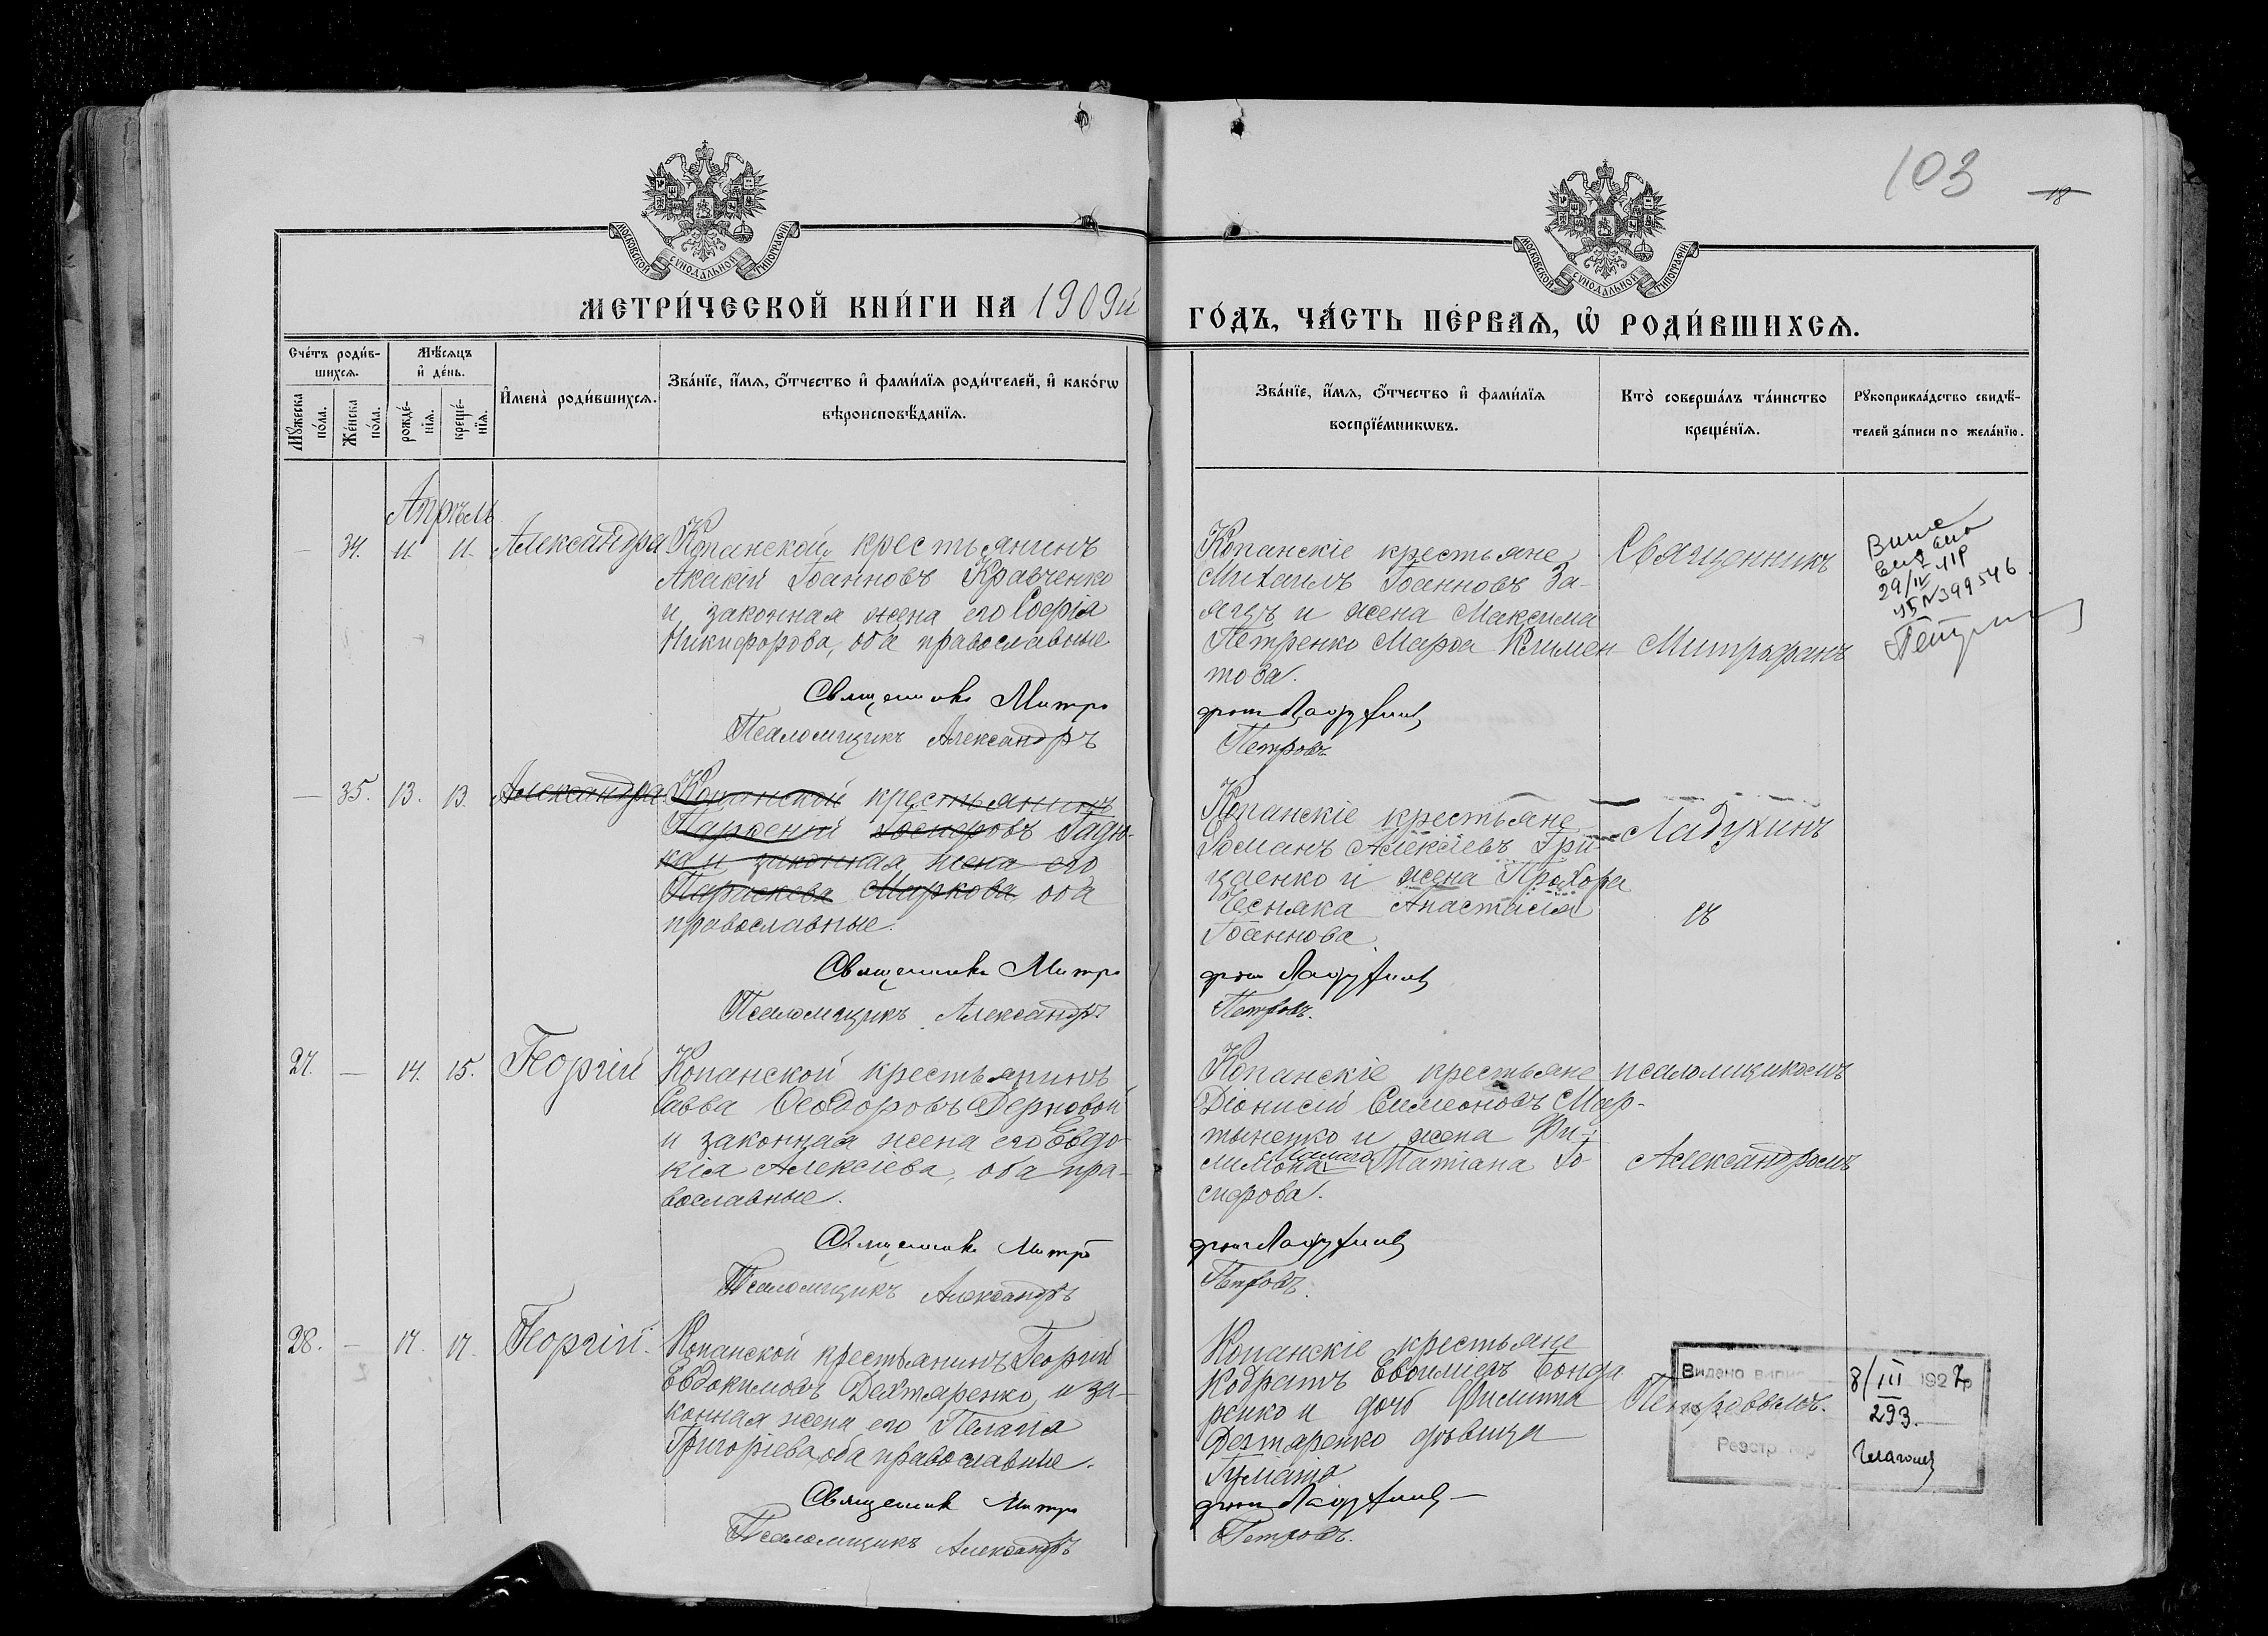 103
18
МОСКОВСКОЙ СѴНОДАЛЬНОЙ ТИПОГРАФІИ
МОСКОВСКОЙ СѴНОДАЛЬНОЙ ТИПОГРАФІИ
МЕТРИ́ЧЕСКОЙ КНИ́ГИ НА 1909й
ГО́ДЪ, ЧА́СТЬ ПЕ́РВАѦ, Ѡ҆ РОДИ́ВШИХСѦ.
Сче́тъ роди́в-
шихсѧ.
Мꙋ́жеска по́ла.
Же́нска по́ла.
Мѣ́сѧцъ
и҆ де́нь.
рожде́-
нїѧ.
креще́-
нїѧ.
И҆мена̀ роди́вшихсѧ.
Зва́нїе, и҆́мѧ, ѻ҆́тчество и҆ фами́лїѧ роди́телей, и҆ како́гѡ
вѣроисповѣ́данїѧ.
Зва́нїе, и҆́мѧ, ѻ҆́тчество и҆ фами́лїѧ
воспрїе́мникѡвъ.
Кто̀ соверша́лъ та́инство
креще́нїѧ.
Рꙋкоприкла́дство свидѣ́-
телей за́писи по жела́нїю.
Апрѣль
— 34. 11. 11. Александра
Копанской крестьянинъ
Акакій Іоанновъ Кравченко
и законная жена его Софія
Никифорова, оба православные
Священникъ Митро
Псаломщикъ Александръ
Копанскіе крестьяне
Михаилъ Іоанновъ За-
яцъ и жена Максима
Петренко Марѳа Климен
това.
фанъ Ладухинъ
Петровъ
Священникъ
Митрофанъ
29/IV 41р
№399546
— 35. 13. 13. Александра
Копанской крестьянинъ
Парѳеній Іосифовъ Гадю-
ка и законная жена его
Параскева Маркова оба
православные.
Священникъ Митро
Псаломщикъ Александръ
Копанскіе крестьяне
Романъ Алексіевъ Гри-
ценко и жена Прохора
Чесняка Анастасія
Іоаннова.
фанъ Ладухинъ
Петровъ.
Ладухинъ
съ
27. — 14. 15. Георгій
Копанской крестьянинъ
Савва Ѳеодоровъ Дерновой
и законная жена его Евдо-
кія Алексіева, оба пра-
вославные.
Священникъ Митро
Псаломщикъ Александръ
Копанскіе крестьяне
Діонисій Симеоновъ Мар-
тыненко и жена Фи-
лимона Татіана Іо-
сифова.
фанъ Ладухинъ
Петровъ.
псаломщикомъ
Александромъ
28. — 17. 17. Георгій.
Копанской крестьянинъ Георгій
Евдокимовъ Дехтяренко и за-
конная жена его Пелагія
Григоріева оба православные.
Священникъ Митро
Псаломщикъ Александръ
Копанскіе крестьяне
Кодратъ Евѳиміевъ Бонда
ренко и дочь Филиппа
Дехтяренко дѣвица
фанъ Ладухинъ
Петровъ.
Петровымъ.
Видано випис
8/III 1927р
293.
Реєстратор